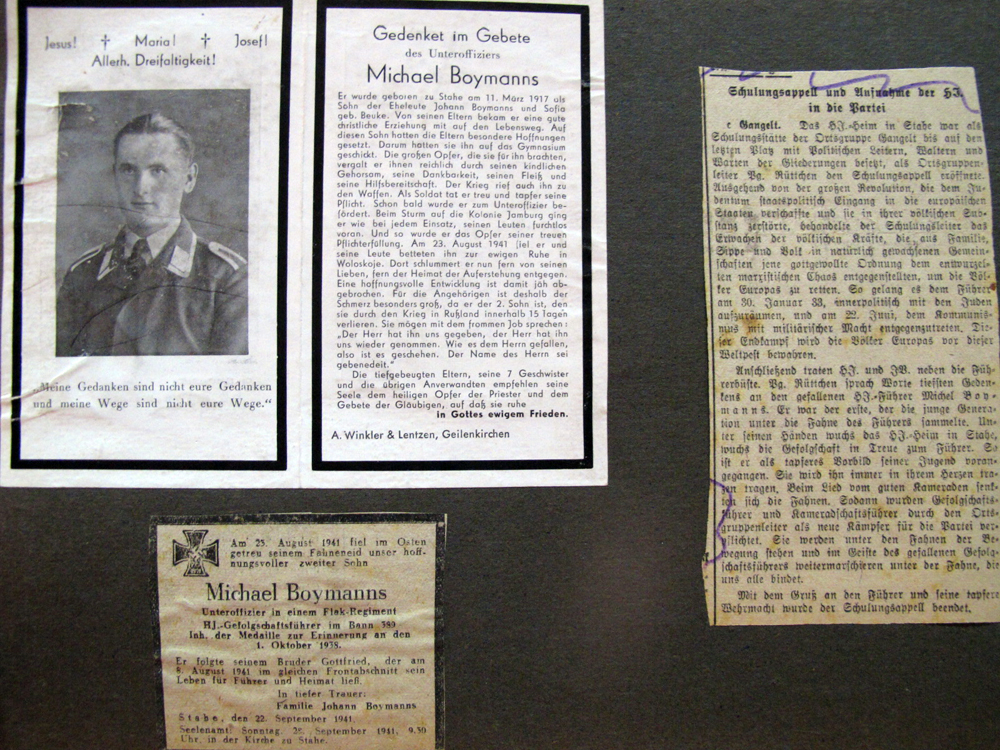 Jesus! † Maria! † Josef!
Allerh. Dreifaltigkeit!
„Meine Gedanken sind nicht eure Gedanken
und meine Wege sind nicht eure Wege.“
Gedenket im Gebete
des Unteroffiziers
Michael Boymanns
Er wurde geboren zu Stahe am 11. März 1917 als
Sohn der Eheleute Johann Boymanns und Sofia
geb. Beuke. Von seinen Eltern bekam er eine gute
christliche Erziehung mit auf den Lebensweg. Auf
diesen Sohn hatten die Eltern besondere Hoffnungen
gesetzt. Darum hatten sie ihn auf das Gymnasium
geschickt. Die großen Opfer, die sie für ihn brachten,
vergalt er ihnen reichlich durch seinen kindlichen
Gehorsam, seine Dankbarkeit, seinen Fleiß und
seine Hilfsbereitschaft. Der Krieg rief auch ihn zu
den Waffen. Als Soldat tat er treu und tapfer seine
Pflicht. Schon bald wurde er zum Unteroffizier be-
fördert. Beim Sturm auf die Kolonie Jamburg ging
er wie bei jedem Einsatz, seinen Leuten furchtlos
voran. Und so wurde er das Opfer seiner treuen
Pflichterfüllung. Am 23. August 1941 fiel er und
seine Leute betteten ihn zur ewigen Ruhe in
Woloskoje. Dort schlummert er nun fern von seinen
Lieben, fern der Heimat der Auferstehung entgegen.
Eine hoffnungsvolle Entwicklung ist damit jäh ab-
gebrochen. Für die Angehörigen ist deshalb der
Schmerz besonders groß, da er der 2. Sohn ist, den
sie durch den Krieg in Rußland innerhalb 15 Tagen
verlieren. Sie mögen mit dem frommen Job sprechen:
„Der Herr hat ihn uns gegeben, der Herr hat ihn
uns wieder genommen. Wie es dem Herrn gefallen,
also ist es geschehen. Der Name des Herrn sei
gebenedeit.“
Die tiefgebeugten Eltern, seine 7 Geschwister
und die übrigen Anverwandten empfehlen seine
Seele dem heiligen Opfer der Priester und dem
Gebete der Gläubigen, auf daß sie ruhe
in Gottes ewigem Frieden.
A. Winkler & Lentzen, Geilenkirchen
Am 23. August 1941 fiel im Osten
getreu seinem Fahneneid unser hoff-
nungsvoller zweiter Sohn
Michael Boymanns
Unteroffizier in einem Flak-Regiment
HJ.-Gefolgschaftsführer im Bann 389
Inh. der Medaille zur Erinnerung an den
1. Oktober 1938.
Er folgte seinem Bruder Gottfried, der am
8. August 1941 im gleichen Frontabschnitt sein
Leben für Führer und Heimat ließ.
In tiefer Trauer:
Familie Johann Boymanns
Stahe, den 22. September 1941.
Seelenamt: Sonntag, 28. September 1941, 9.30
Uhr, in der Kirche zu Stahe.
Schulungsappell und Aufnahme der HJ.
in die Partei
c Gangelt. Das HJ.-Heim in Stahe war als
Schulungsstätte der Ortsgruppe Gangelt bis auf den
letzten Platz mit Politischen Leitern, Waltern und
Warten der Gliederungen besetzt, als Ortsgruppen-
leiter Pg. Rüttchen den Schulungsappell eröffnete.
Ausgehend von der großen Revolution, die dem Ju-
dentum staatspolitisch Eingang in die europäischen
Staaten verschaffte und sie in ihrer völkischen Sub-
stanz zerstörte, behandelte der Schulungsleiter das
Erwachen der völkischen Kräfte, die aus Familie,
Sippe und Volk in natürlich gewachsenen Gemein-
schaften jene gottgewollte Ordnung dem entwurzel-
ten marxistischen Chaos entgegenstellten, um die Völ-
ker Europas zu retten. So gelang es dem Führer
am 30. Januar 33, innerpolitisch mit den Juden
aufzuräumen, und am 22. Juni, dem Kommunis-
mus mit militärischer Macht entgegenzutreten. Die-
ser Endkampf wird die Völker Europas vor dieser
Weltpest bewahren.
Anschließend traten HJ. und JV. neben die Füh-
rerbüste. Pg. Rüttchen sprach Worte tiefsten Geden-
kens an den gefallenen HJ.-Führer Michel Boy-
manns. Er war der erste, der die junge Genera-
tion unter die Fahne des Führers sammelte. Un-
ter seinen Händen wuchs das HJ.-Heim in Stahe,
wuchs die Gefolgschaft in Treue zum Führer. So
ist er als tapferes Vorbild seiner Jugend voran-
gegangen. Sie wird ihn immer in ihrem Herzen tra-
gen tragen. Beim Lied vom guten Kameraden senk-
ten sich die Fahnen. Sodann wurden Gefolgschafts-
führer und Kameradschaftsführer durch den Orts-
gruppenleiter als neue Kämpfer für die Partei ver-
pflichtet. Sie werden unter den Fahnen der Be-
wegung stehen und im Geiste des gefallenen Gefolg-
schaftsführers weitermarschieren unter der Fahne, die
uns alle bindet.
Mit dem Gruß an den Führer und seine tapfere
Wehrmacht wurde der Schulungsappell beendet.